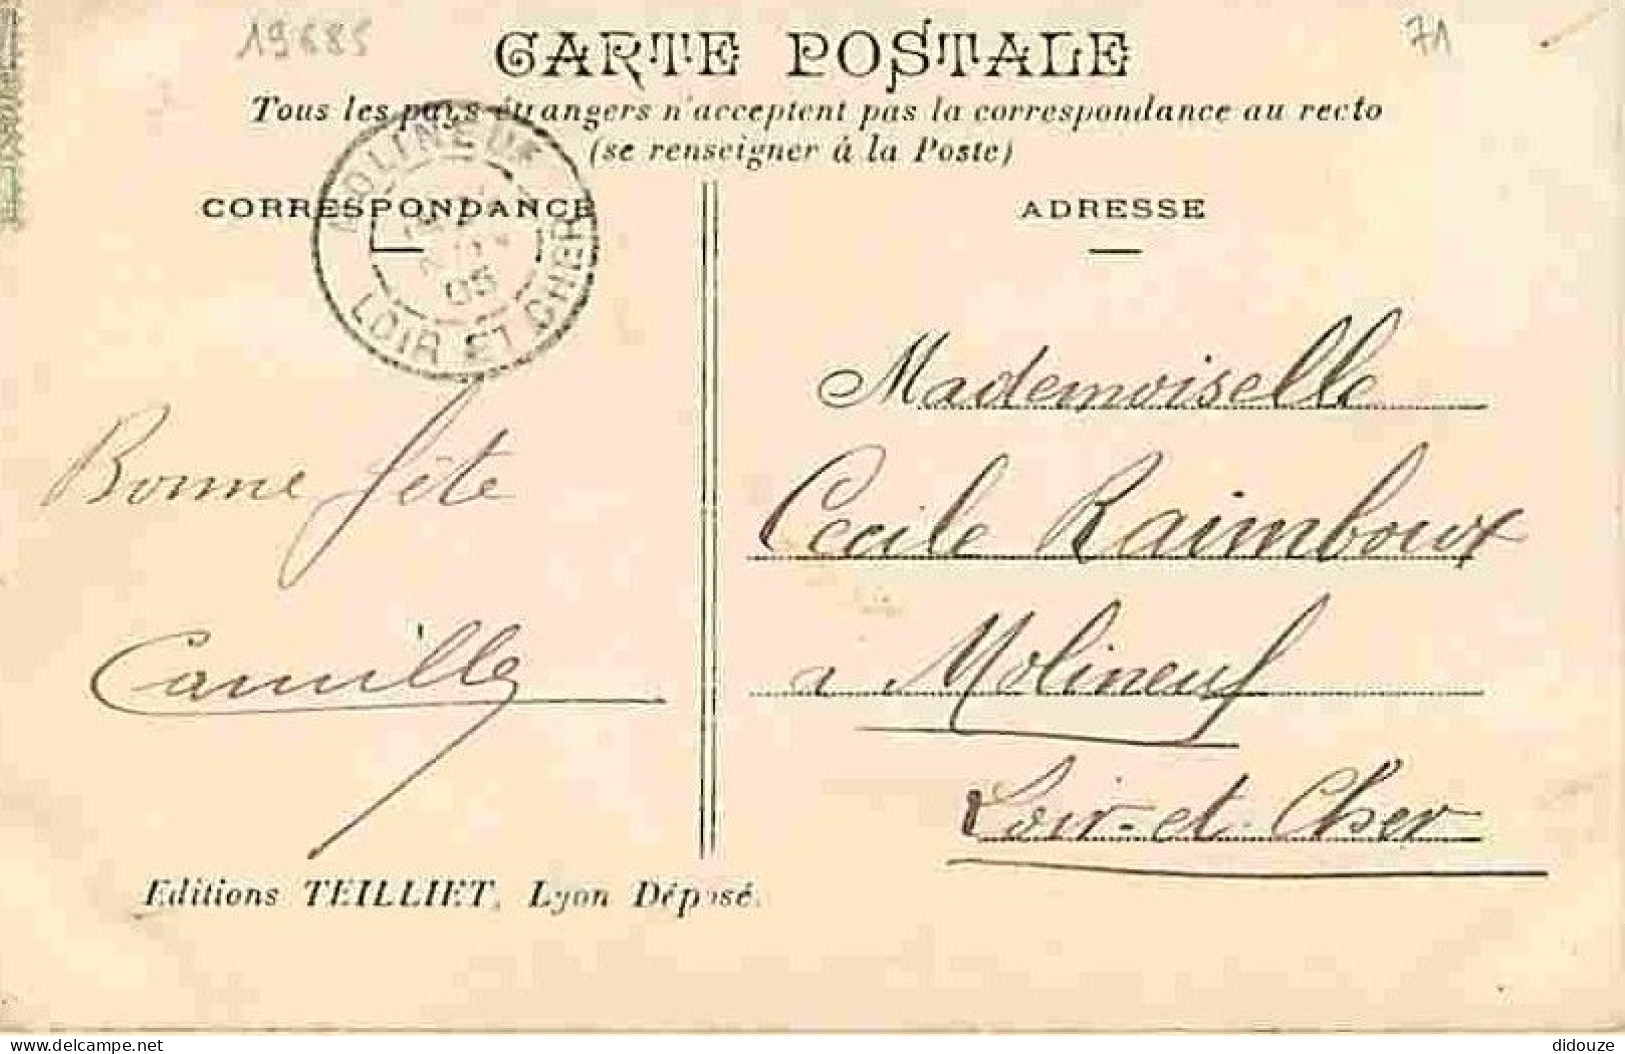 19685
71
CARTE POSTALE
Tous les pays étrangers n'acceptent pas la correspondance au recto
(se renseigner à la Poste)
CORRESPONDANCE
MOLINEUF
05
LOIR ET CHER
Bonne fête
Camille
ADRESSE
Mademoiselle
Cecile Raimboux
a Molineuf
Loir-et-Cher
Editions TEILLIET, Lyon Déposé.
www.delcampe.net
didouze